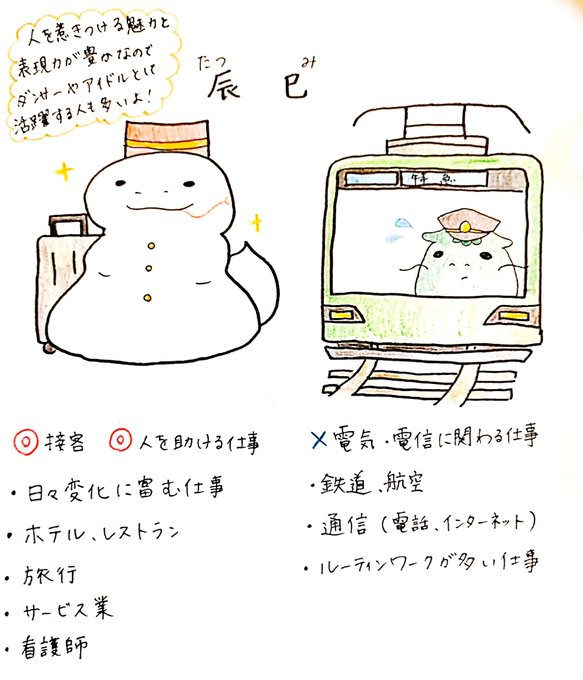 人を惹きつける魅力と
表現力が豊かなので
ダンサーやアイドルとして
活躍する人も多いよ!
たつ み
辰 巳
特急
◎接客 ◎人を助ける仕事
・日々変化に富む仕事
・ホテル、レストラン
・旅行
・サービス業
・看護師
×電気・電信に関わる仕事
・鉄道、航空
・通信(電話、インターネット)
・ルーティンワークが多い仕事